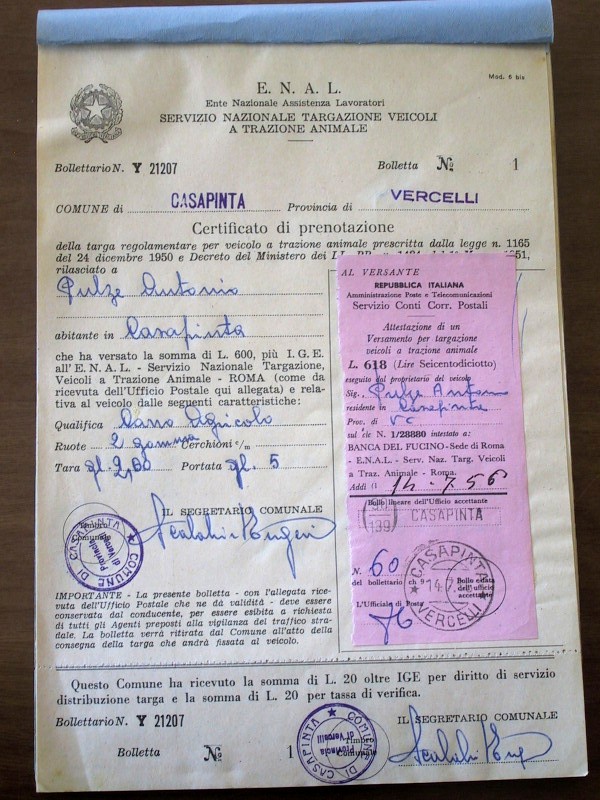 Mod. 6 bis
E. N. A. L.
Ente Nazionale Assistenza Lavoratori
SERVIZIO NAZIONALE TARGAZIONE VEICOLI
A TRAZIONE ANIMALE
Bollettario N. Y 21207 Bolletta № 1
COMUNE di CASAPINTA Provincia di VERCELLI
Certificato di prenotazione
della targa regolamentare per veicolo a trazione animale prescritta dalla legge n. 1165
del 24 dicembre 1950 e Decreto del Ministero dei
rilasciato a
Pulze Antonio
abitante in Casapinta
che ha versato la somma di L. 600, più I. G. E.
all'E. N. A. L. - Servizio Nazionale Targazione,
Veicoli a Trazione Animale - ROMA (come da
ricevuta dell'Ufficio Postale qui allegata) e relativa al veicolo dalle seguenti caratteristiche:
Qualifica Carro Agricolo
Ruote 2 gomma Cerchioni c/m
Tara ql. 2,00 Portata ql. 5
IL SEGRETARIO COMUNALE
Timbro
Comunale
COMUNE DI CASAPINTA
Provincia di Vercelli
IMPORTANTE - La presente bolletta - con l'allegata rice-
vuta dell'Ufficio Postale che ne dà validità - deve essere
conservata dal conducente, per essere esibita a richiesta
di tutti gli Agenti preposti alla vigilanza del traffico stra-
dale. La bolletta verrà ritirata dal Comune all'atto della
consegna della targa che andrà fissata al veicolo.
AL VERSANTE
REPUBBLICA ITALIANA
Amministrazione Poste e Telecomunicazioni
Servizio Conti Corr. Postali
Attestazione di un
Versamento per targazione
veicoli a trazione animale
L. 618 (Lire Seicentodiciotto)
eseguito dal proprietario del veicolo
Sig. Pulze Antonio
residente in Casapinta
Prov. di VC
sul c/c N. 1/28880 intestato a:
BANCA DEL FUCINO - Sede di Roma
- E.N.A.L. - Serv. Naz. Targ. Veicoli
a Traz. Animale - Roma.
Addì 14.7.56
Bollo lineare dell'Ufficio accettante
139 CASAPINTA
N. 60
del bollettario ch
Bollo a data
dell'ufficio
accettante
L'Ufficiale di Posta
CASAPINTA 14.7 VERCELLI
Questo Comune ha ricevuto la somma di L. 20 oltre IGE per diritto di servizio
distribuzione targa e la somma di L. 20 per tassa di verifica.
Bollettario N. Y 21207 IL SEGRETARIO COMUNALE
Bolletta № 1
Timbro
Comunale
COMUNE DI CASAPINTA
Provincia di Vercelli